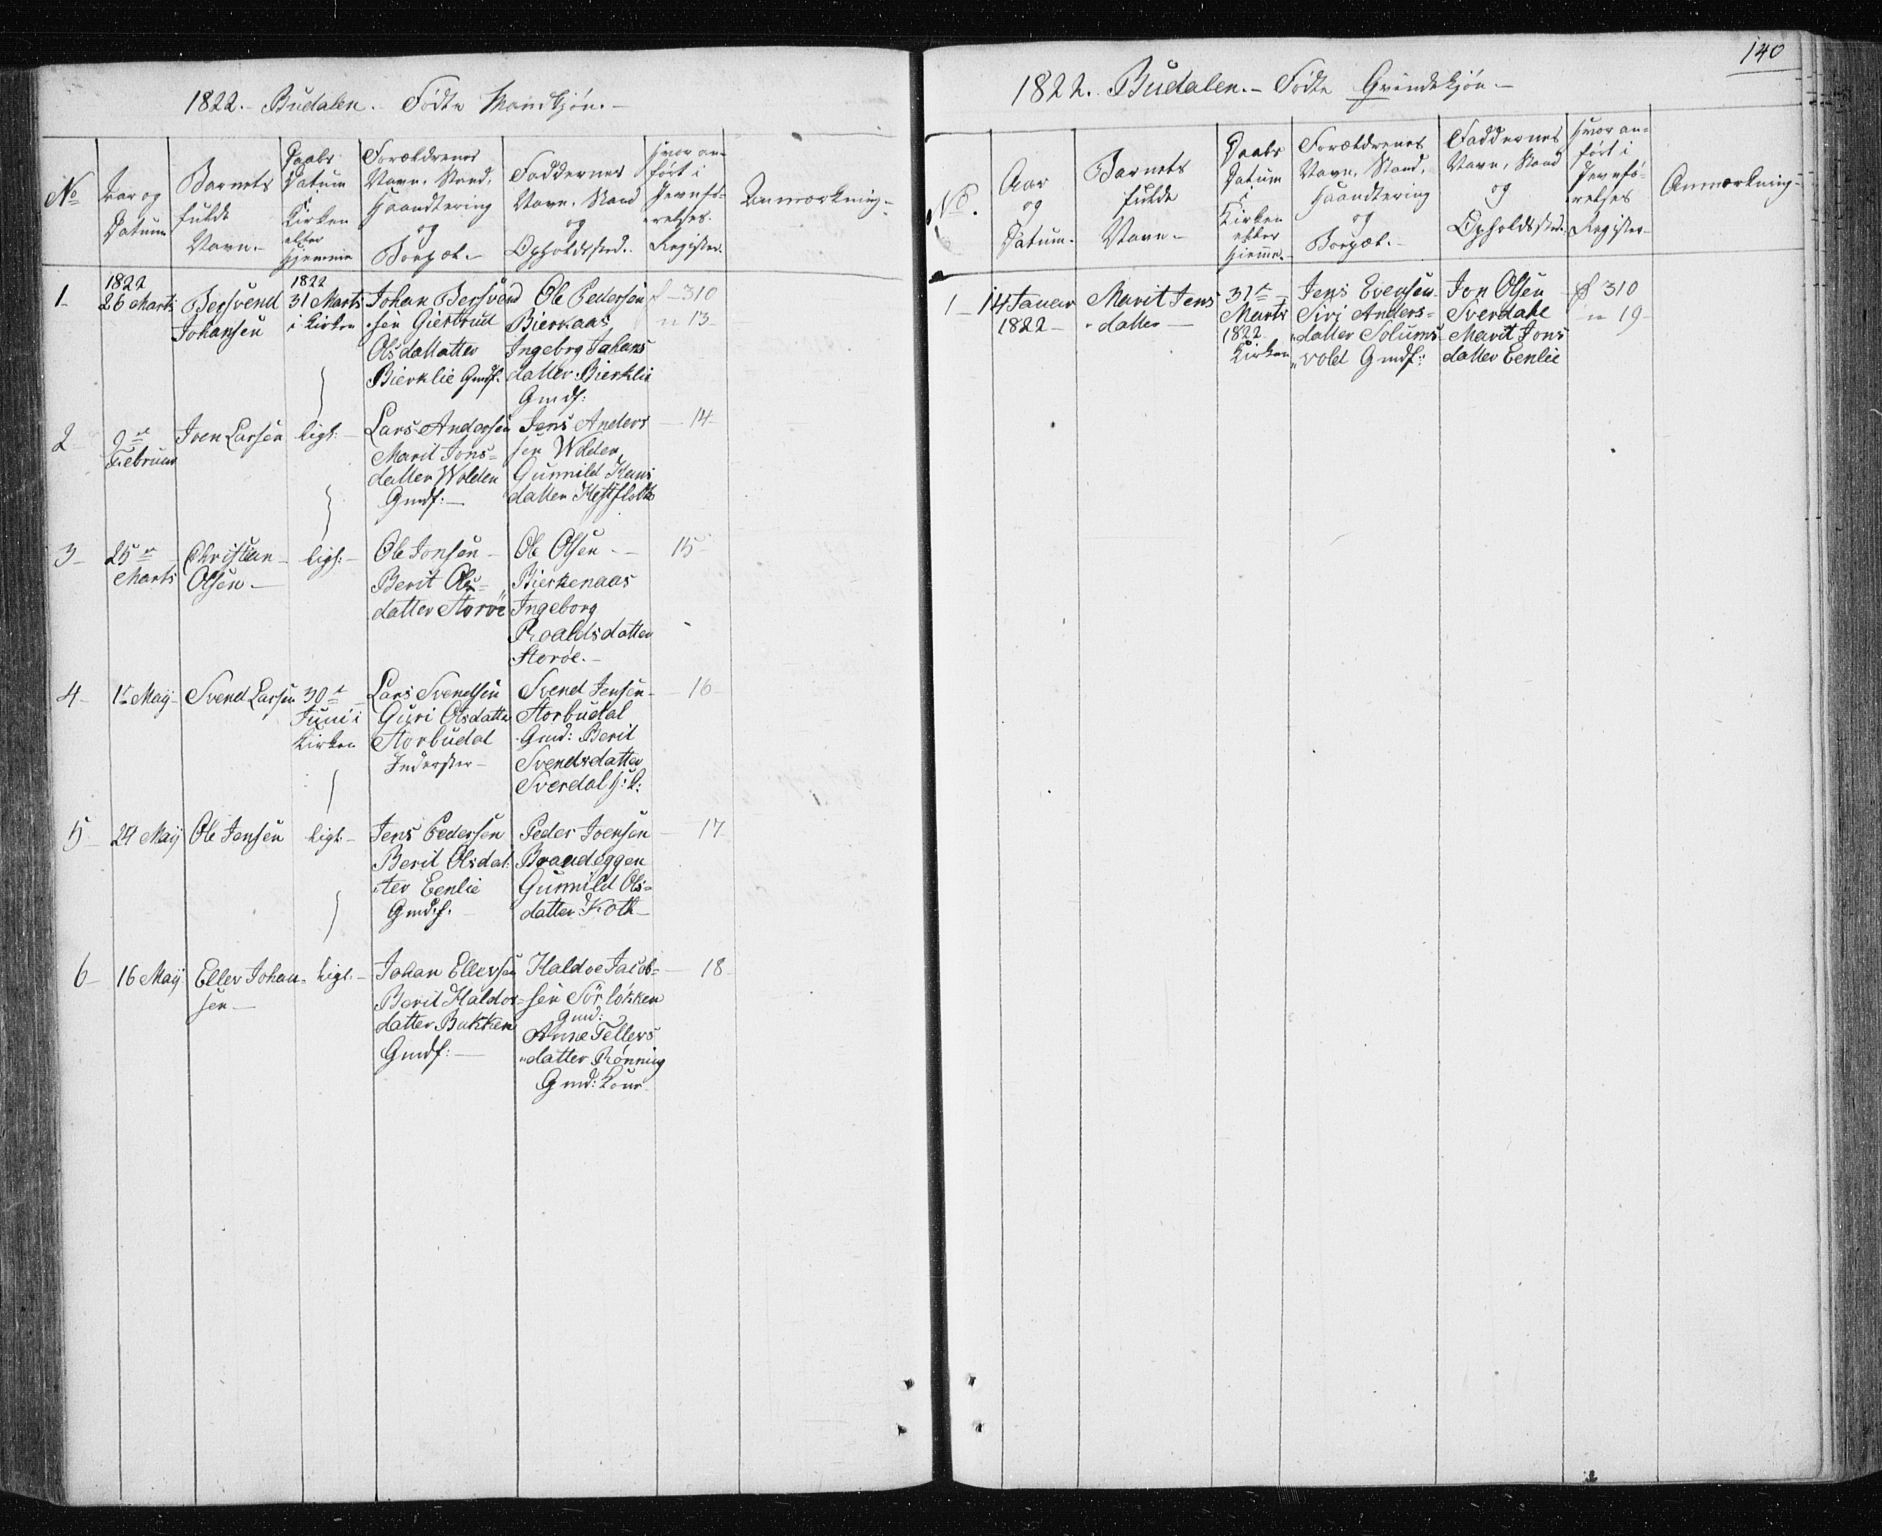 140
1822. Budalen. Födte Mandkjön.
No
Aar og
Datum
Barnets
fulde
Navn.
Daabs
Datum
i
Kirken
eller
Hjemme
Forældrenes
Navn, Stand,
Haandtering
og
Boepæl.
Faddernes
Navn, Stand
og
Opholdssted.
Hvor an-
fört i
Jevnfö-
relses
Register.
Anmærkning
1
1822
26 Marts
Bersvend
Johansen
1822
31 Marts
i Kirken
Johan Bersvend
sen Giertrud
Olsdatter
Bierklie Gmdf.
Ole Pedersen
Bierkaas,
Ingebrg Johans
datter Bierklie
Gmdf:
f 310
n 13
2
9de
Februar
Iven Larsen
ligl:
Lars Andersen
Marit Jons=
datter Wolden
Gmdf:
Jens Anders
sen Wolden,
Gunnild Hans
datter Hestflotte
14
3
25de
Marts
Christian
Olsen
ligl:
Ole Jonsen
Berit Ols=
datter Storöe
Ole Olsen
Bierkenaas
Ingeborg
Roaldsdatter
Storöe.
15
4
1te May
Svend Larsen
30te
Juni i
Kirken
Lars Svendsen
Guri Olsdatter
Storbudal
Inderster
Svend Jensen
Storbudal
Gmd: Berit
Svendsdatter
Sverdal
16
5
24 May
Ole Jensen
ligl:
Jens Pedersen
Berit Olsdat:
ter Eenlie
Gmdf.
Peder Ivensen
Brandeggen
Gunnild Ols=
datter Koth
17
6
16 May
Eller Johan=
sen
ligl:
Johan Ellersen
Berit Haldor=
datter Bakken
Gmdf:
Haldoe Jacob=
sen Sörlökken
Gmd:
Anne Tellers
datter Rönning
Gmd: Kone
18
1822. Budalen. Födte Qvindekjön
No.
Aar
og
Datum.
Barnets
fulde
Navn
Daabs
Datum
i
Kirken
eller
Hjemme
Forældrenes
Navn, Stand,
Haandtering
og
Boepæl.
Faddernes
Navn, Stand
og
Opholdssted.
Hvor an-
fört i
Jevnfö-
relses
Register
Anmærkning.
1
14 Januar
1822
Marit Jens
datter
31te
Marts
1822
Kirken
Jens Evensen
Siri Anders=
datter Solums
vold Gmdf:
Jon Olsen
Sverdahl
Marit Jons
datter Eenlie
f 310
n 19